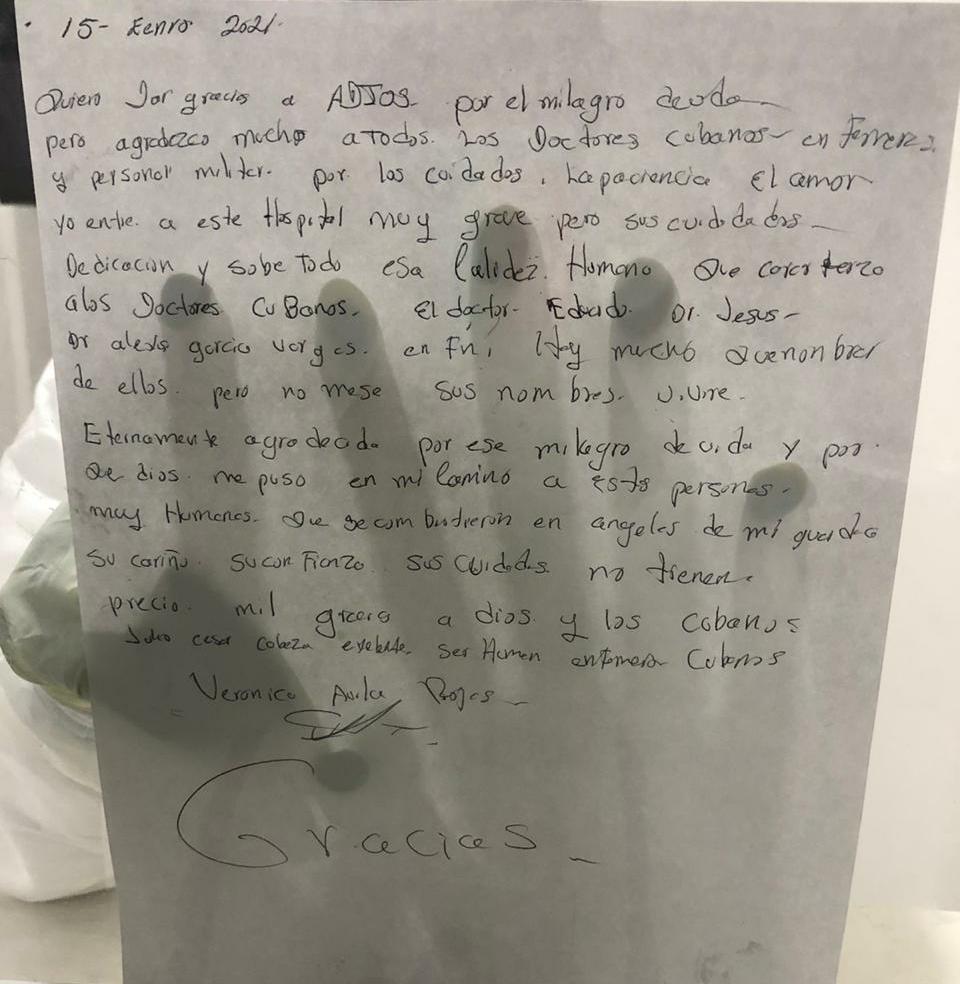 15- Eenro 2021.
Quiero Dar gracias a ADIOS por el milagro devida
pero agradezco mucho a Todos. Los Doctores cubanos en
y personal militer. por los cuidados, La paciencia El amor
yo entre. a este Hospital muy grave pero sus cuidados
Dedicacion y sobe Todo esa Calidez Humano Que
alos Doctores CuBanos. El doctor- Eduado. Dr. Jesus-
Dr alexis garcia vargas. en Fn, Hay mucho Quenonbrar
de ellos. pero no mese sus nombres. vivire.
Eternamente agradecida por ese milagro de vida y por
Que dios. me puso en mi Camino a Estas personas.
muy Humanas. Que se en angeles de mi guarda
su cariño. su con Fianza. sus cuidados. no tienen.
precio. mil gracias a dios. y los cubanos
Julio cesar cabeza exelente. ser Human enfermera Cubanos
Veronica Avila Rojas
Gracias